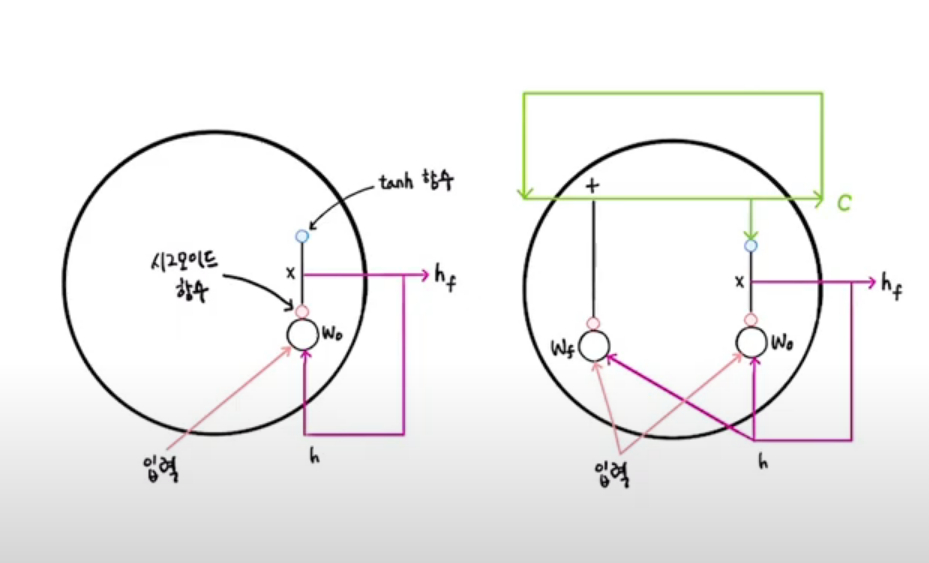 tanh 함수
시그모이드
함수
x
h_f
W_o
입력
h
+
C
x
h_f
W_f
W_o
입력
h